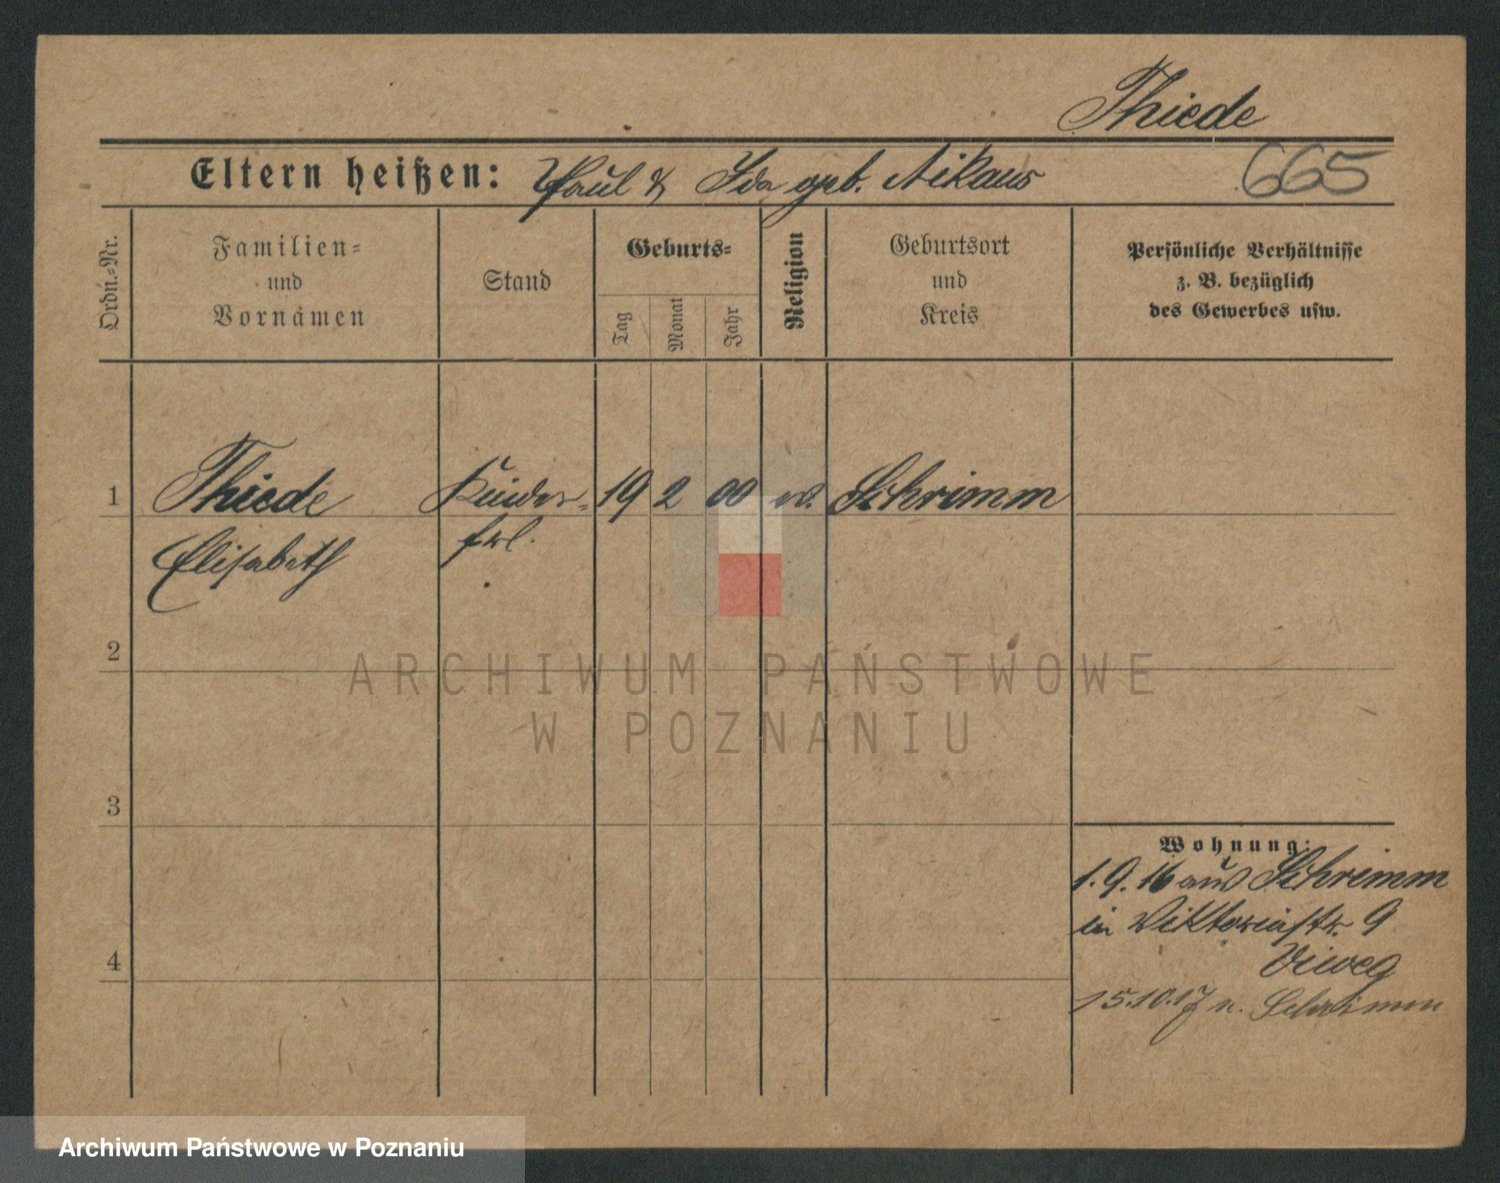 Thiede
Eltern heißen: Paul & Ida geb. Nikaus
665
Ordn.-Nr.
Familien-
und
Vornamen
Stand
Geburts-
Tag
Monat
Jahr
Religion
Geburtsort
und
Kreis
Persönliche Verhältnisse
z. B. bezüglich
des Gewerbes usw.
1 Thiede Kinder- 19 2 00 ev. Schrimm
Elisabeth frl.
2
3
4
Wohnung:
1.9.16 aus Schrimm
in Viktoriastr. 9
Viweg
15.10.17 n. Schrimm
ARCHIWUM PAŃSTWOWE
W POZNANIU
Archiwum Państwowe w Poznaniu